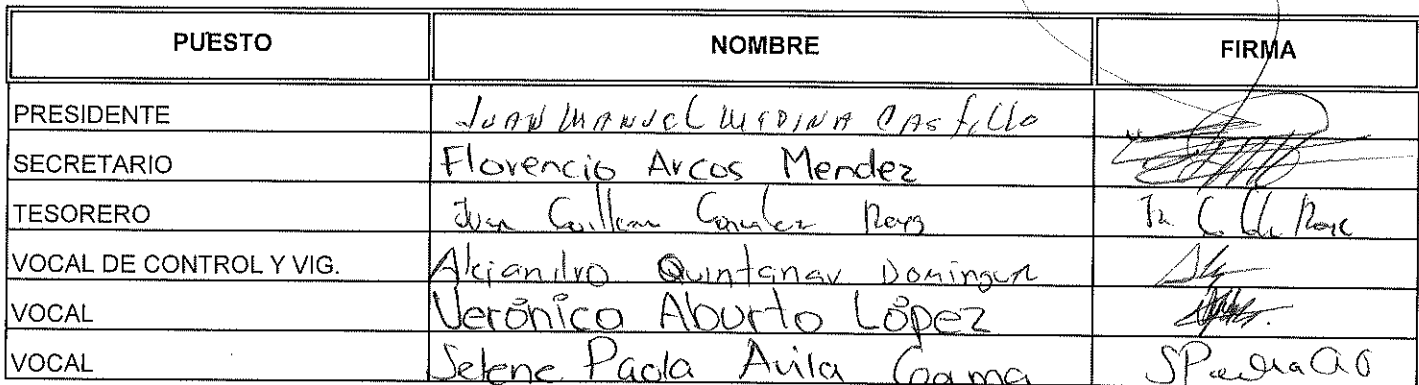 PUESTO NOMBRE FIRMA
PRESIDENTE JUAN MANUEL MEDINA CASTILLO
SECRETARIO Florencio Arcos Mendez
TESORERO Juan Guillermo Gonzalez
VOCAL DE CONTROL Y VIG. Alejandro Quintanar Dominguez
VOCAL Verónica Aburto López
VOCAL Selene Paola Avila Gama